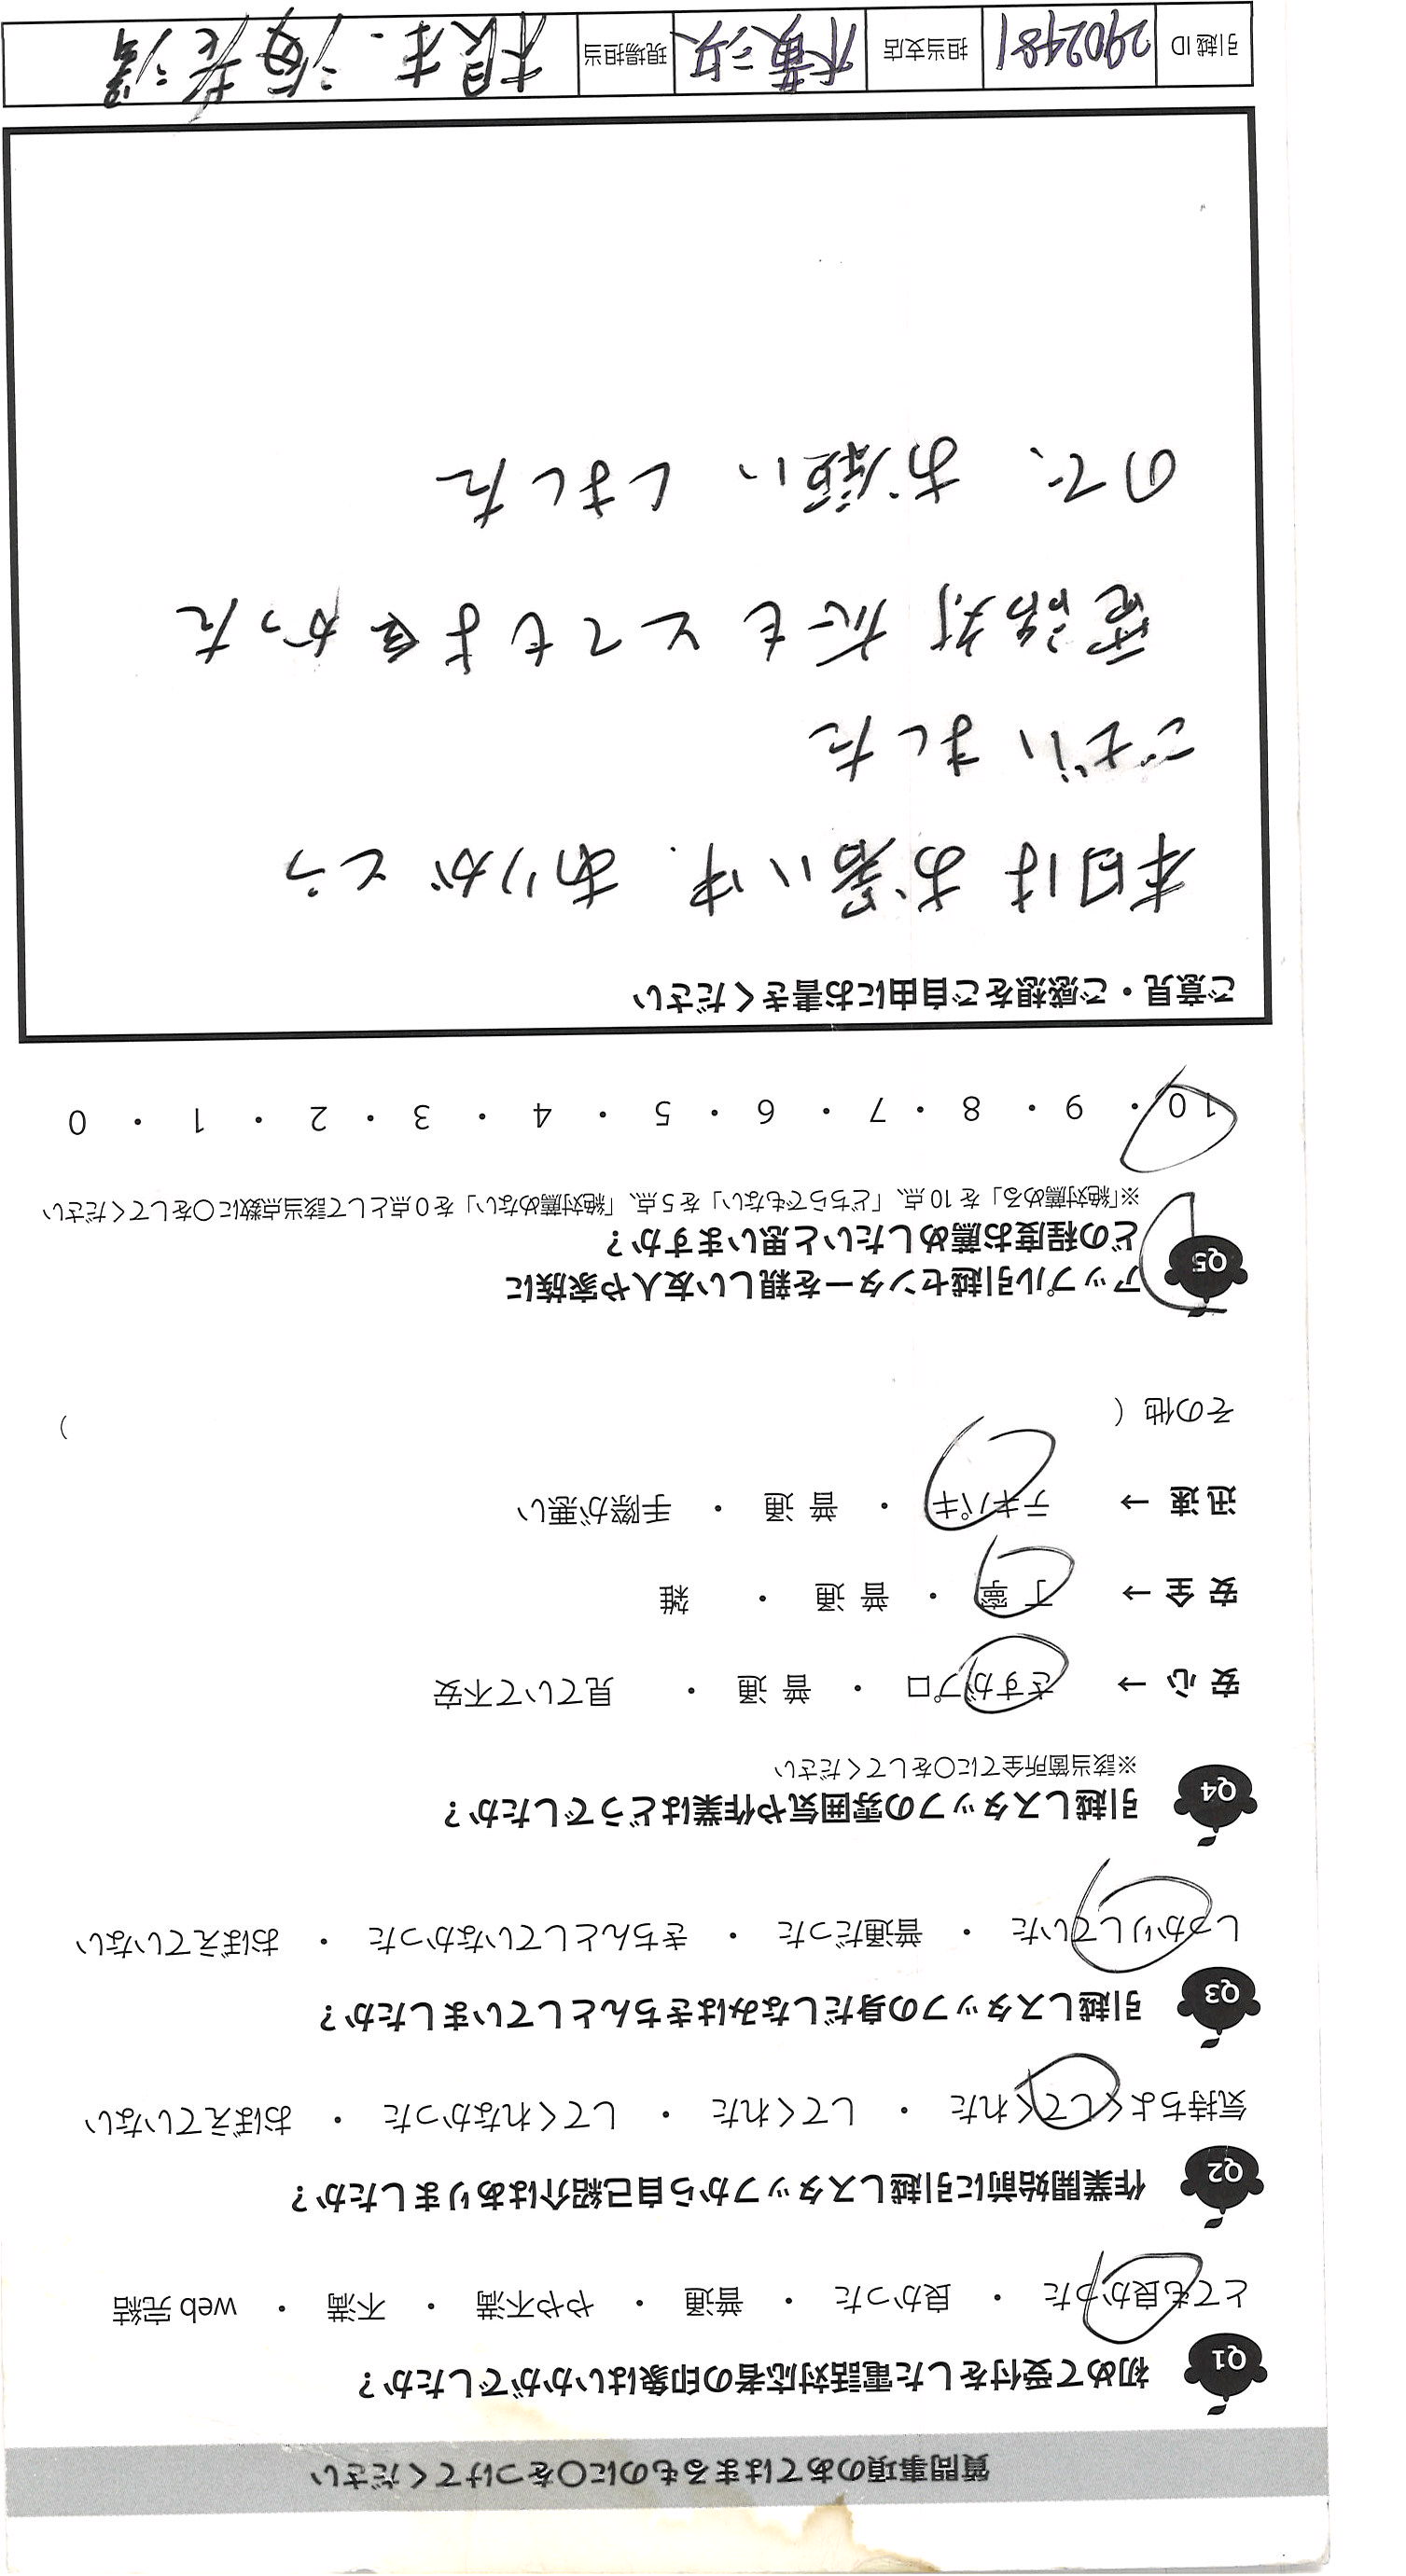 質問事項のあてはまるものに〇をつけてください
Q1 初めて受付をした電話対応者の印象はいかがでしたか？
とても良かった ・ 良かった ・ 普通 ・ やや不満 ・ 不満 ・ web 完結
Q2 作業開始前に引越しスタッフから自己紹介はありましたか？
気持ちよくしてくれた ・ してくれた ・ してくれなかった ・ おぼえていない
Q3 引越しスタッフの身だしなみはきちんとしていましたか？
しっかりしていた ・ 普通だった ・ きちんとしていなかった ・ おぼえていない
Q4 引越しスタッフの雰囲気や作業はどうでしたか？
※該当箇所全てに〇をしてください
安 心 → さすがプロ ・ 普 通 ・ 見ていて不安
安 全 → 丁 寧 ・ 普 通 ・ 雑
迅 速 → テキパキ ・ 普 通 ・ 手際が悪い
その他（ ）
Q5 アップル引越センターを親しい友人や家族に
どの程度お薦めしたいと思いますか？
※「絶対薦める」を 10 点、「どちらでもない」を 5 点、「絶対薦めない」を 0 点として該当点数に〇をしてください
10 ・ 9 ・ 8 ・ 7 ・ 6 ・ 5 ・ 4 ・ 3 ・ 2 ・ 1 ・ 0
ご意見・ご感想をご自由にお書きください
本日はお暑い中、ありがとう
ございました
電話対応もとてもよかった
ので、お願いしました
引越 ID 2902481 担当支店 横浜 現場担当 根本・海老澤